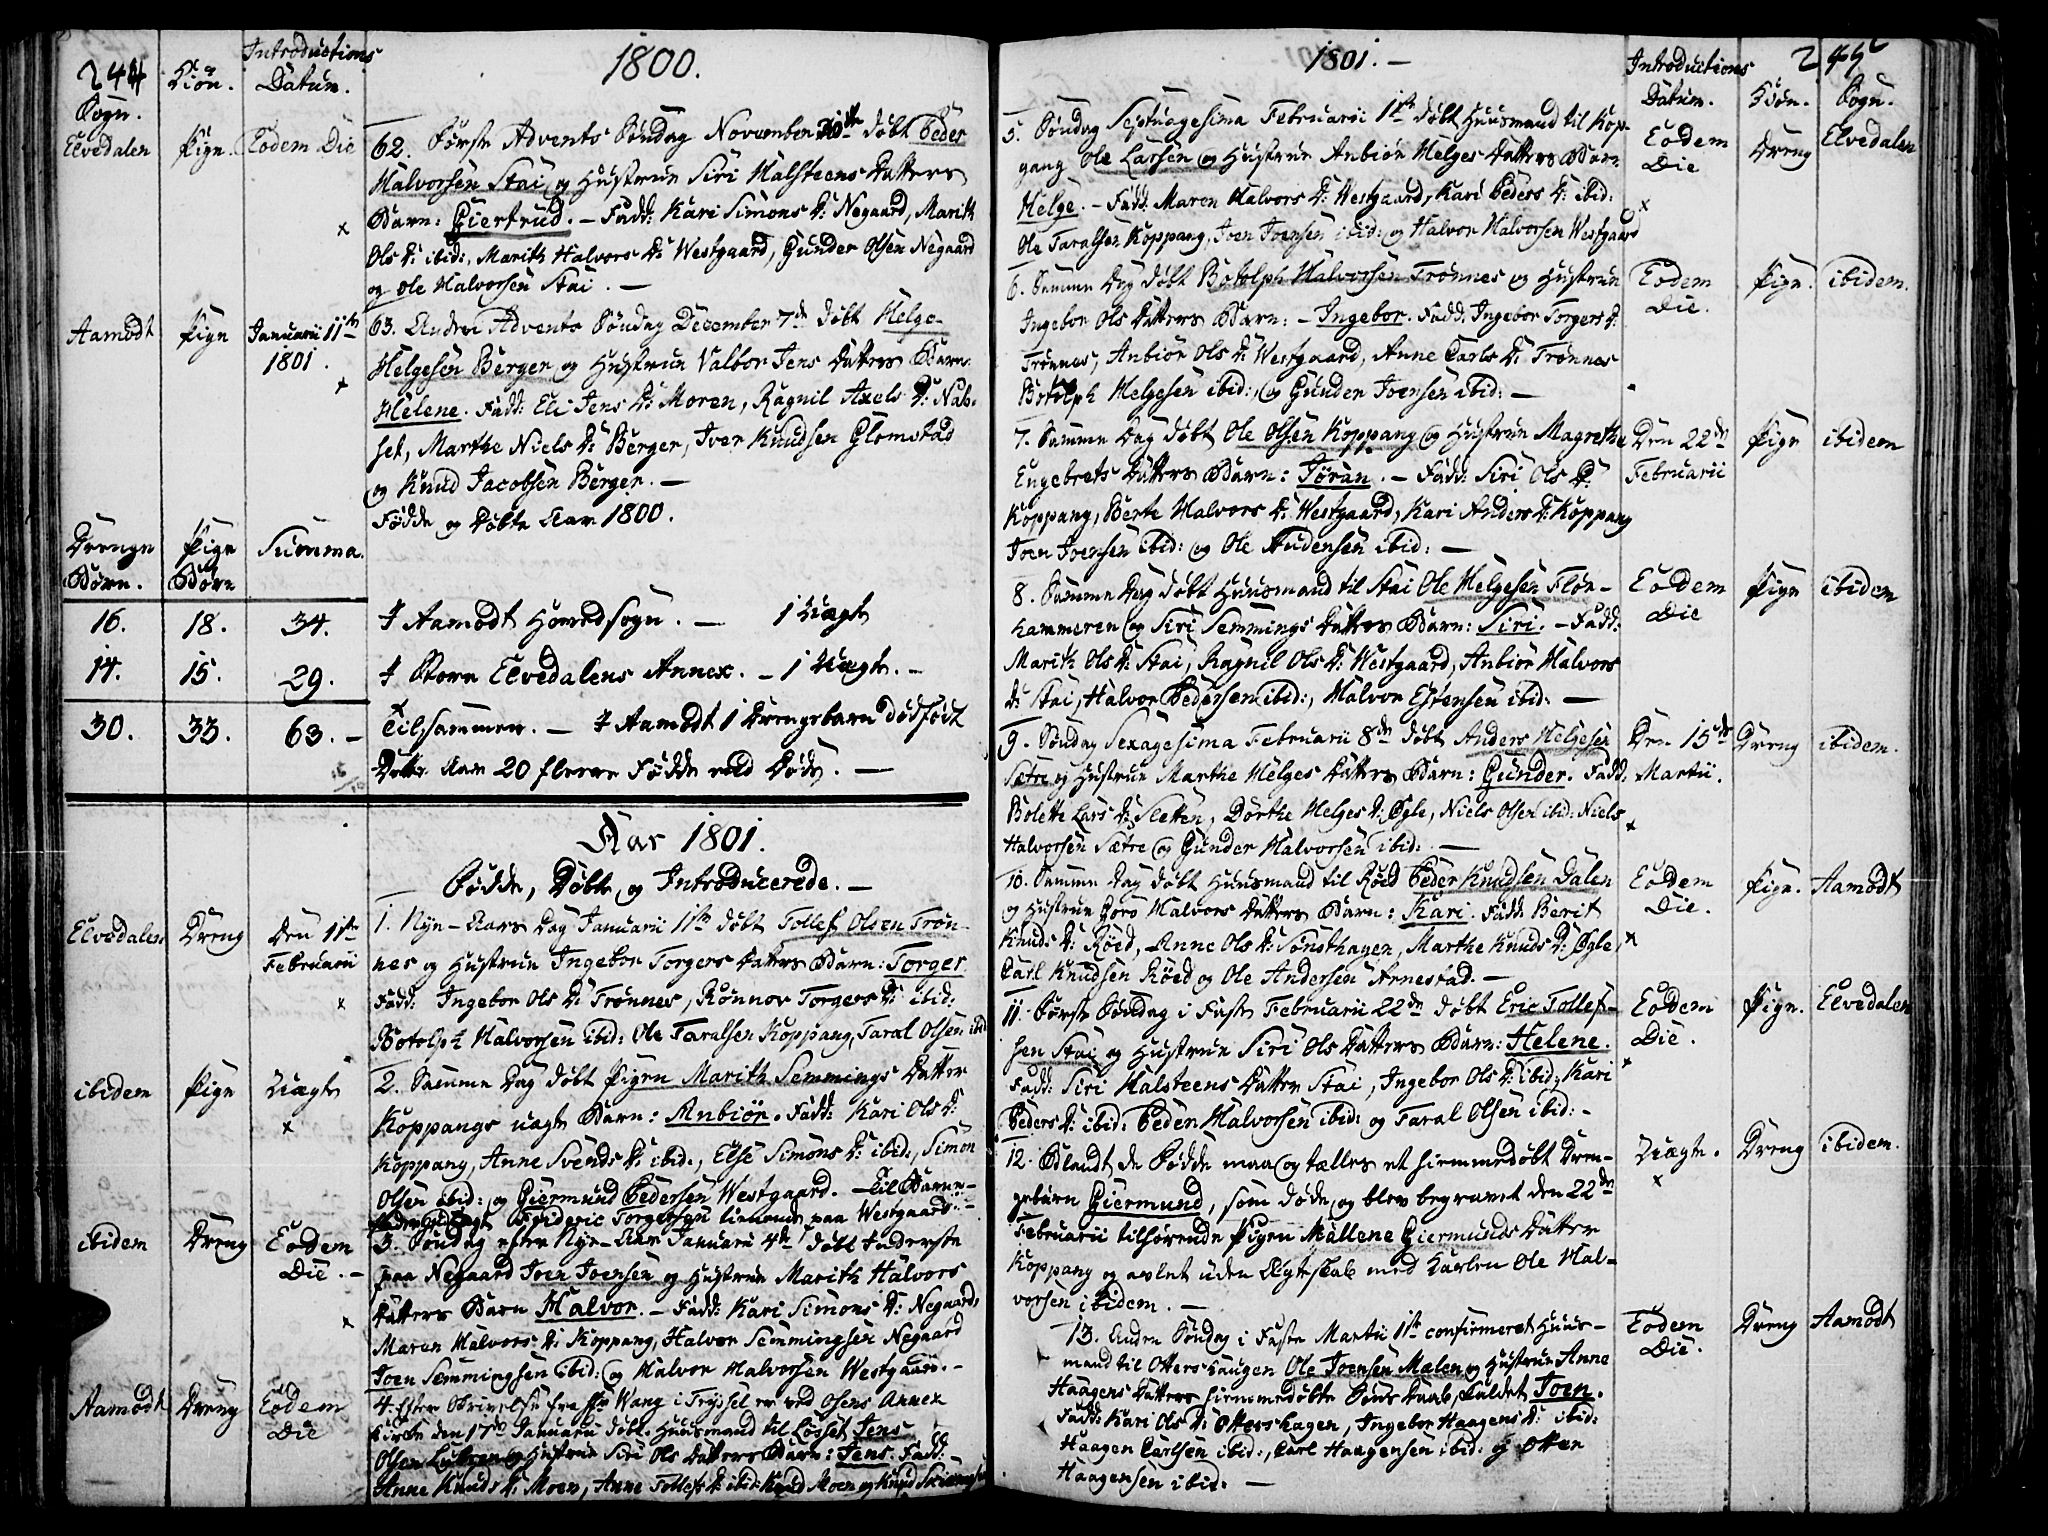 244 Kiön. Introductions Datum. 1800.
Sogn.
Elvedalen Pige. Eodem Die
62. Første Advents Søndag November 30te døbt Peder
Halvorsen Stai og Hustrue Siri Halsteens Datters
Barn: Giertrud. – Fadd: Kari Simons D: Negaard, Marith
Ols D: ibid:, Marith Halvors D: Westgaard, Gunder Olsen Negaard
og Ole Halvorsen Stai. –
Aamodt Pige Januarii 11te 1801.
63. Andre Advents Søndag December 7de døbt Helge
Helgesen Berger og Hustrue Valbor Jens Datters Barn
Helene. Fadd: Eli Jens D: Moren, Ragnil Axels D: Nab-
set, Marthe Niels D: Berger, Iver Knudsen Glomstad
og Knud Jacobsen Berger. –
Fødde og Døbte Aar 1800.
Drenge Børn. Pige Børn Summa.
16. 18. 34. I Aamodt Hovedsogn. – 1 Uægte
14. 15. 29. I Store Elvedalens Annex. – 1 Uægte. –
30. 33. 63. – Tilsammen. – I Aamodt 1 Drengebarn dødfødt
Dette Aar 20 fleere Fødde end Døde. –
Aar 1801.
Fødde, Døbte og Introducerede. –
Elvedalen Dreng Den 1ste Februarii
1. Nye-Aars Dag Januarii 1ste døbt Tollef Olsen Trøn-
nes og Hustrue Ingebor Torgers Datters Barn: Torger
Fadd: Ingebor Ols D: Trønnes, Rønnov Torgers D: ibid:
Botolph Halvorsen ibid: Ole Taralsen Koppang, Taral Olsen ibid
ibidem Pige Uægte
2. Samme Dag døbt Pigen Marith Semmings Datter
Koppangs uægte Barn: Anbiør. Fadd: Kari Ols D:
Koppang, Anne Svends D: ibid:, Else Simons D: ibid:, Simon
Olsen ibid: og Giermund Pedersen Westgaard. – Til Barne-
Frideric Torgersen tienende paa Westgaard. –
ibidem Dreng Eodem Die. –
3. Søndag efter Nye-Aar Januarii 4de døbt Inderste
paa Negaard Joen Joensen og Hustrue Marith Halvors
Datters Barn Halvor. – Fadd: Kari Simons D: Negaard,
Maren Halvors D: Koppang, Halvor Semmingsen Negaard
Joen Semmingsen ibid: og Halvor Halvorsen Westgaard. –
Aamodt Dreng Eodem Die
4. Efter Skrivelse fra Hr Wang i Tryssel er ved Osens Annex
Kirke den 17de Januarii døbt Huusmand til Losset Jens
Olsen og Hustrue Siri Ols Datters Barn: Jens. Fadd:
Anne Knuds D: Moen, Anne Tollefs D: ibid: Knud Moen og Knud
1801. – Introductions Datum. Kiön. 245 Sogn.
5. Søndag Septuagesima Februarii 1ste døbt Huusmand til Kop-
gang Ole Larsen og Hustrue Anbiør Helges Datters Barn
Helge. – Fadd: Maren Halvors D: Westgaard, Kari Peders D: ibid:
Ole Taralsen Koppang, Joen Joensen ibid: og Halvor Halvorsen Westgaard
Eodem Die Dreng Elvedalen
6. Samme Dag døbt Botolph Halvorsen Trønnes og Hustrue
Ingebor Ols Datters Barn: – Ingebor. Fadd: Ingebor Torgers D:
Trønnes, Anbiør Ols D: Westgaard, Anne Carls D: Trønnes
Botolph Helgesen ibid:, og Gunder Joensen ibid: –
Eodem Die. Pige. ibidem.
7. Samme Dag døbt Ole Olsen Koppang og Hustrue Magrethe
Engebrets Datters Barn: Jøran. – Fadd: Siri Ols D:
Koppang, Berte Halvors D: Westgaard, Kari Anders D: Koppang
Joen Joensen ibid: og Ole Audensen ibid: –
Den 22de Februarii Pige ibidem
8. Samme Dag døbt Huusmand til Stai Ole Helgesen Flon-
kammeren og Siri Semmings Datters Barn: Siri. – Fadd:
Marith Ols D: Stai, Ragnil Ols D: Westgaard, Anbiør Halvors
D: Stai, Halvor Pedersen ibid:, Halvor Estensen ibid: –
Eodem Die Pige ibidem
9. Søndag Sexagesima Februarii 8de døbt Anders Helgesen
Sætre og Hustrue Marthe Helges Datters Barn: Gunder. Fadd:
Bolette Lars D: Sletten, Dorthe Helges D: Øgle, Niels Olsen ibid: Niels
Halvorsen Sætre og Gunder Halvorsen ibid: –
Den 15de Martii. Dreng ibidem.
10. Samme Dag døbt Huusmand til Røed Peder Knudsen Dalen
og Hustrue Goro Halvors Datters Barn: Kari. Fadd: Berit
Knuds D: Røed, Anne Ols D: Sonsthagen, Marthe Knuds D: Øgle,
Carl Knudsen Røed og Ole Andersen Arnestad. –
Eodem Die. Pige. Aamodt
11. Første Søndag i Faste Februarii 22de døbt Eric Tollef-
sen Stai og Hustrue Siri Ols Datters Barn: Helene.
Fadd: Siri Halsteens Datter Stai, Ingebor Ols D: ibid:, Kari
Peders D: ibid: Peder Halvorsen ibid: og Taral Olsen ibid: –
Eodem Die. Pige. Elvedalen
12. Blandt de Fødde maa og tælles et hiemmedøbt Dren-
gebarn Giermund, som døde og blev begravet den 22de
Februarii tilhørende Pigen Mallene Giermunds Datter
Koppang og avlet uden Ægteskab med Karlen Ole Hal-
vorsen ibidem. –
Uægte. Dreng ibidem.
13. Anden Søndag i Faste Martii 1ste confirmeret Huus-
mand til Otters Haugen Ole Joensen Mælen og Hustrue Anne
Haagens Datters hiemmedøbte Søns Daab, kaldet Joen.
Fadd: Kari Ols D: Ottershagen, Ingebor Haagens D: ibid:
Haagen Carlsen ibid:, Carl Haagensen ibid: og Otter
Haagensen ibid: –
Eodem Die. Dreng Aamodt